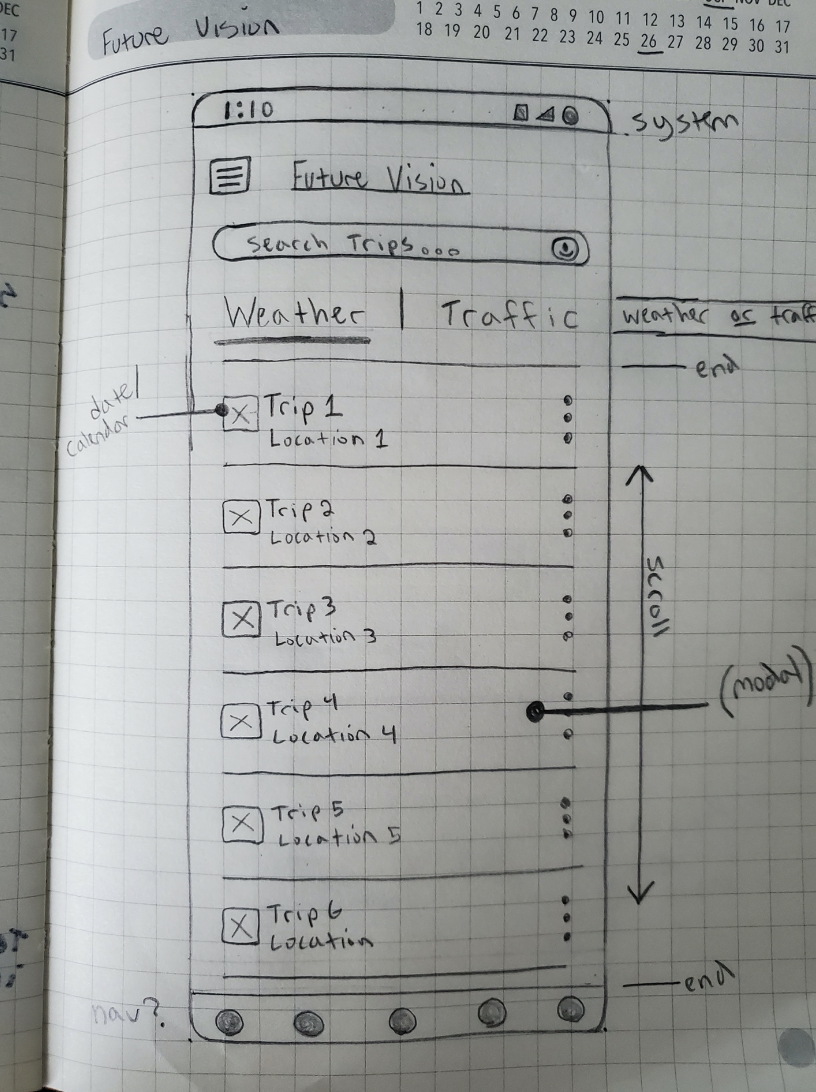 DEC
17
31
Future Vision
NOV DEC
1 2 3 4 5 6 7 8 9 10 11 12 13 14 15 16 17
18 19 20 21 22 23 24 25 26 27 28 29 30 31
1:10
system
Future Vision
Search Trips...
Weather | Traffic
weather or traff
end
date/
calendar
Trip 1
Location 1
Trip 2
Location 2
scroll
Trip 3
Location 3
(modal)
Trip 4
Location 4
Trip 5
Location 5
Trip 6
Location
end
nav?